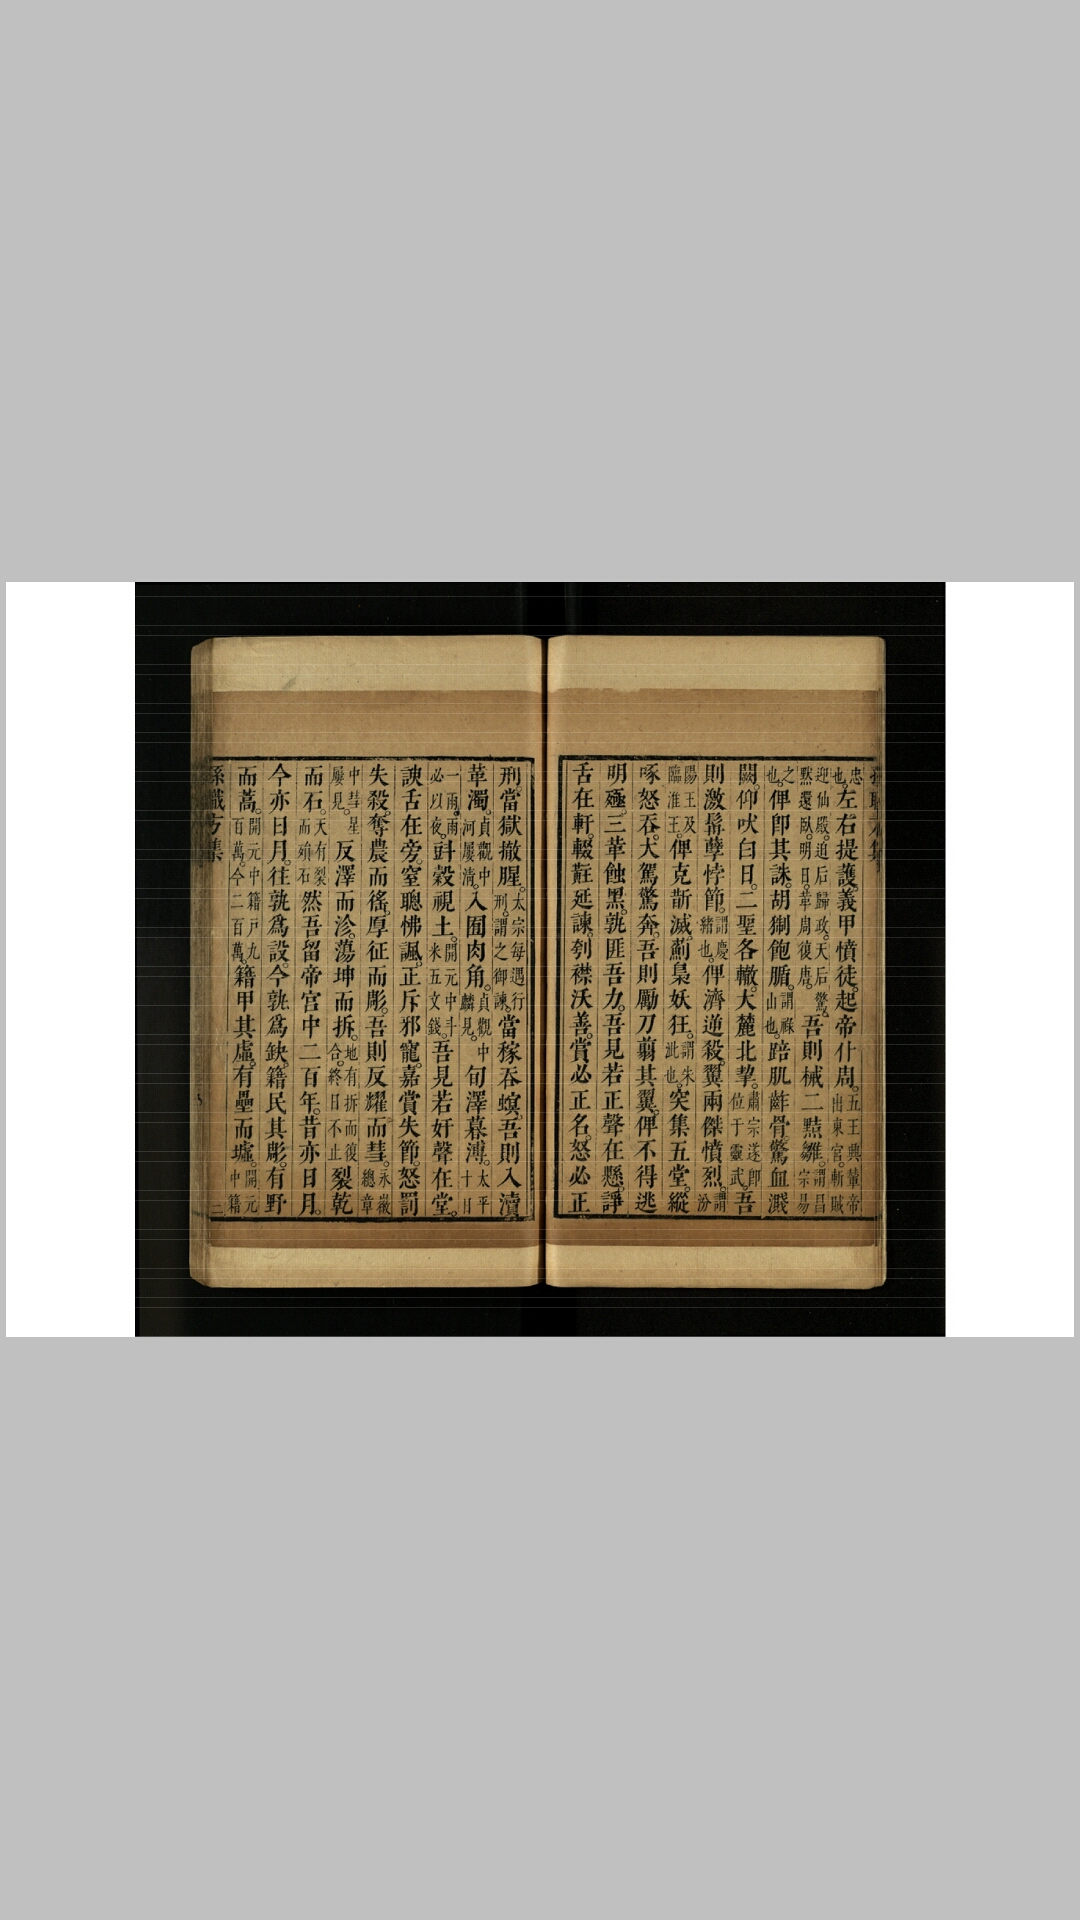 忠也。左右提護。義甲憤徒。起帝什周。五王興輦帝出東宮。斬賊
迎仙嚴。迫后歸政。天后驚。黙還臥。明日革周復唐。吾則械二黠雛。謂昌宗易
之也。俾卽其誅。胡猘飽腯。謂祿山也。踣肌齰骨。驚血濺
闕。仰吠白日。二聖各轍。大麓北挚。肅宗遂卽位于靈武。吾
則激髯孽悖節。謂慶緒也。俾濟逆殺。翼兩傑憤烈。謂汾
陽王及臨淮王。俾克斮滅。薊梟妖狂。謂朱泚也。突集五堂。縱
啄怒吞。大駕驚奔。吾則勵刀翦其翼。俾不得逃
明殛。三革蝕黑。孰匪吾力。吾見若正聲在懸。諍
舌在軒。輟延諫。刳襟沃善。賞必正名。怒必正
刑。當獄撤腥。太宗每遇行刑。謂之御諫。當稼吞螟。吾則入瀆
革濁。貞觀中河屢淸。入囿肉角。貞觀中麟見。旬澤暮溥。太平十日
一雨。雨必以夜。䜴穀視土。開元中斗米五文錢。吾見若奸聲在堂。
諛舌在旁。窒聰怫諷。正斥邪寵。嘉賞失節。怒罰
失殺。奪農而徭。厚征而彫。吾則反耀而彗。永徽總章
中彗星屢見。反澤而沴。蕩坤而拆。地有拆而復合。終日不止裂乾
而石。天有裂而殞石然吾留帝宮中二百年。昔亦日月。
今亦日月。往孰爲設。今孰爲缺。籍民其彫。有野
而蒿。開元中籍戶九百萬。今二百萬。籍甲其虛。有壘而墟。開元中籍